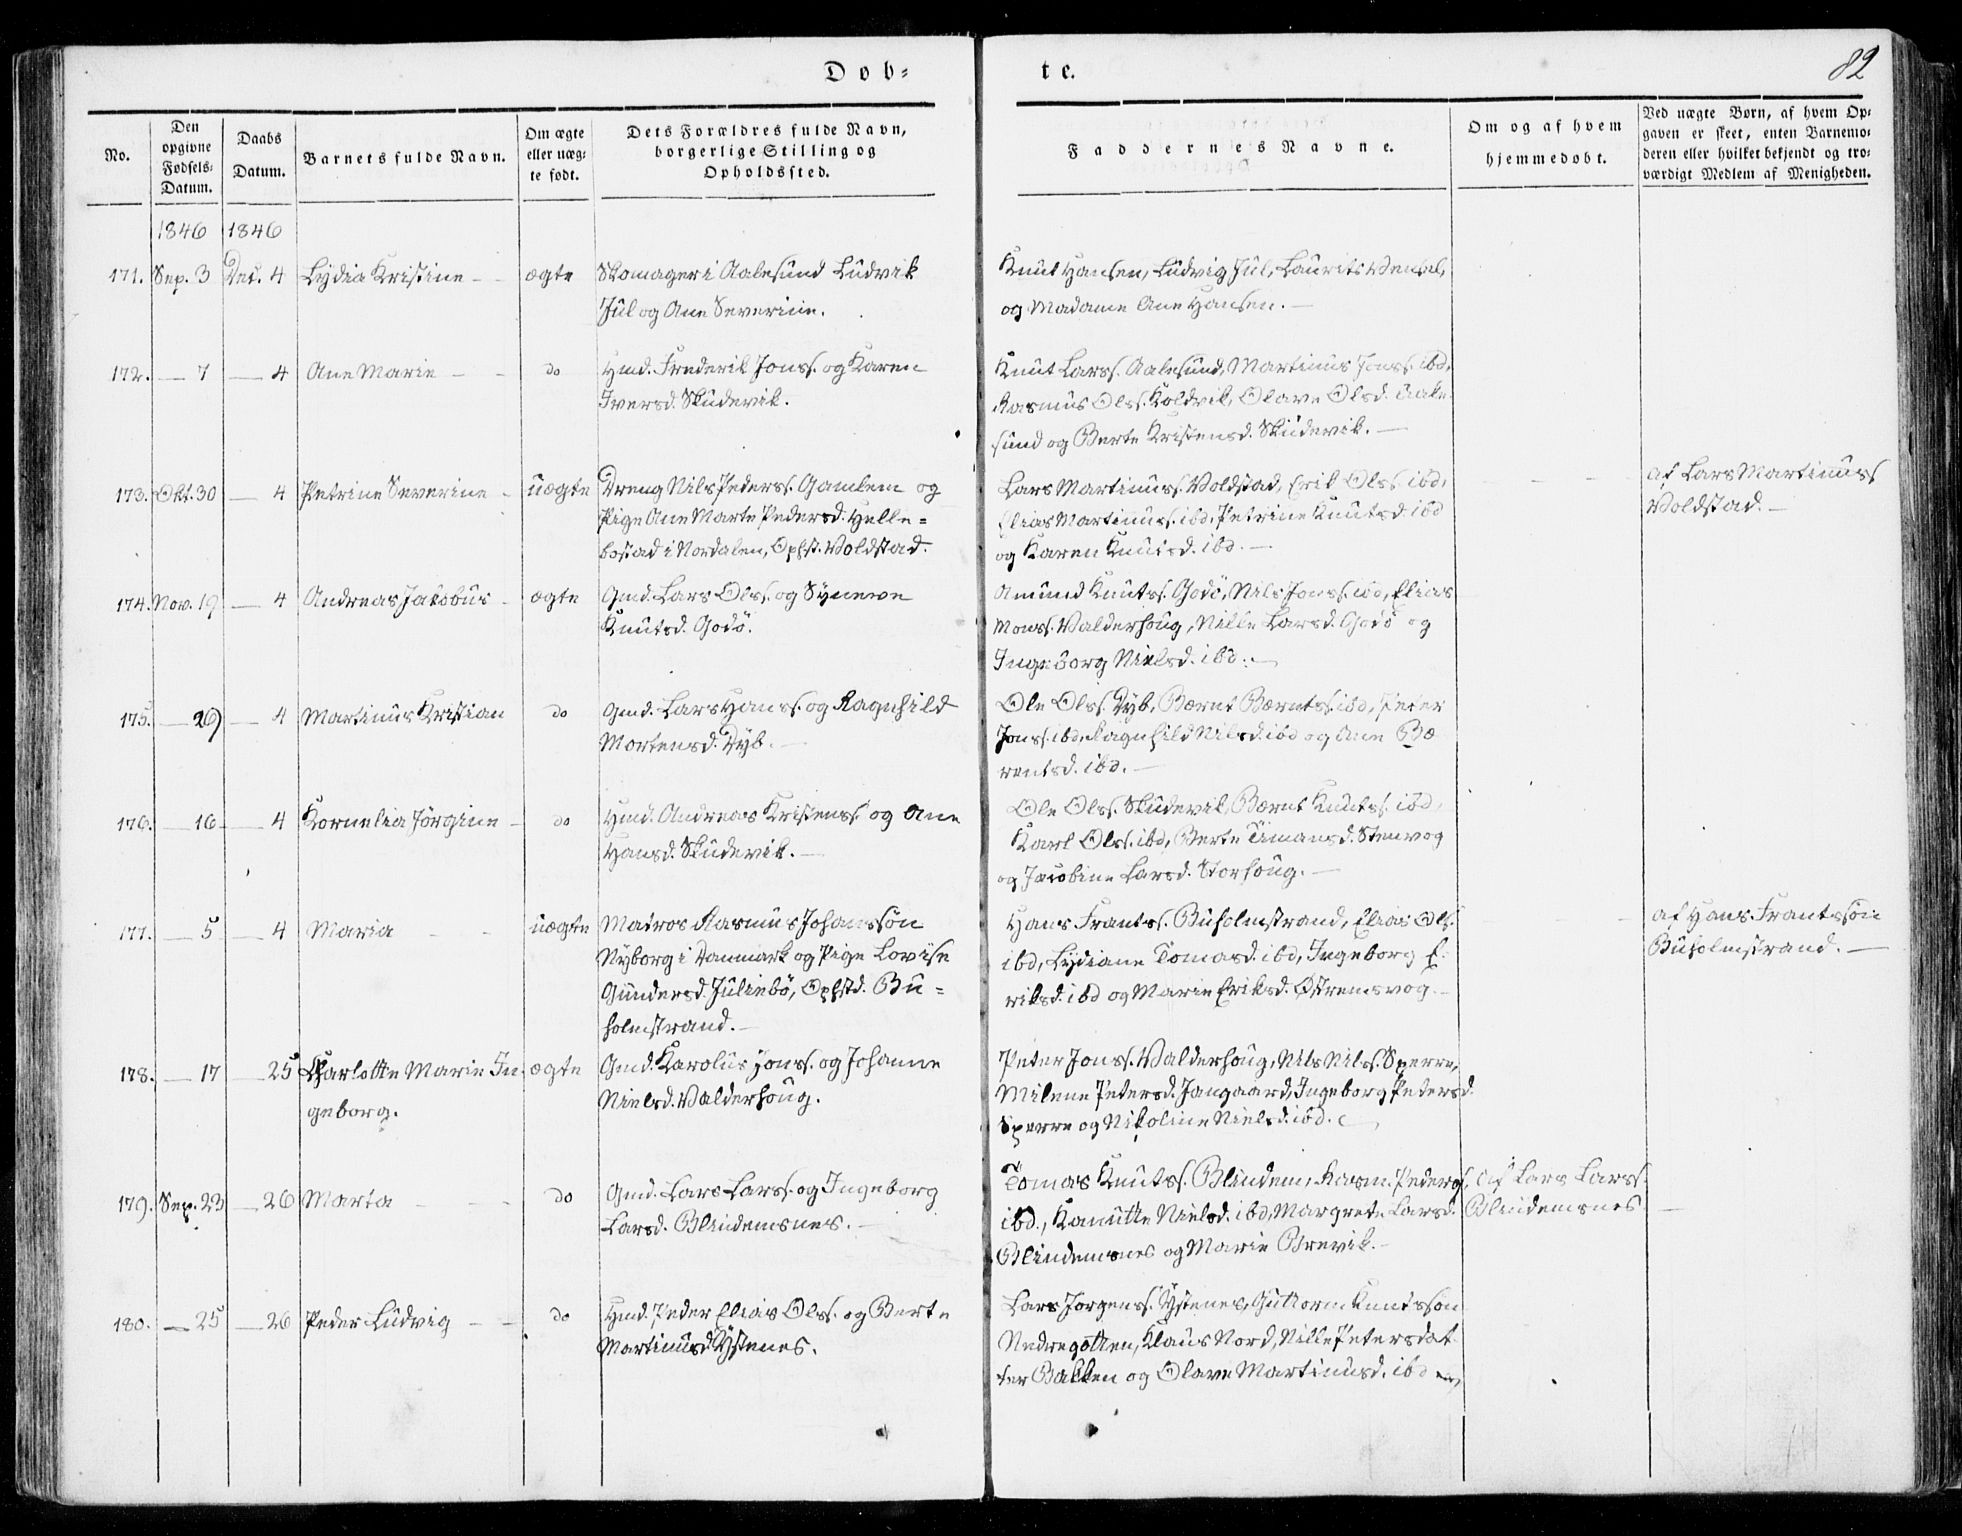 Døb-
te.
82
No.
Den
opgivne
Fødsels-
Datum.
Daabs
Datum.
Barnets fulde Navn.
Om ægte
eller uæg-
te født.
Dets Forældres fulde Navn,
borgerlige Stilling og
Opholdssted.
Faddernes Navne.
Om og af hvem
hjemmedøbt.
Ved uægte Børn, af hvem Op-
gaven er skeet, enten Barnemo-
deren eller hvilket bekjendt og tro-
værdigt Medlem af Menigheden.
1846 1846
171. Sep. 3 Dec. 4 Lydia Kristine - - ægte
Skomager i Aalesund Ludvik
Jul og Ane Severine.
Knut Hansen, Ludvig Jul, Laurits Wensel,
og Madame Ane Hansen. —
172. — 7 — 4 Ane Marie - - do
Hmd. Frederik Jonss. og Karen
Iversd. Skudevik.
Knut Larss. Aalesund, Martinus Jonss. ibd,
Rasmus Olss. Koldvik, Olave Olsd. Aale-
sund og Berte Kristensd. Skudevik. —
173. Okt. 30 — 4 Petrine Severine - uægte
Dreng Nils Pederss. Gamlem og
Pige Ane Marte Pedersd. Helle-
bostad i Nordalen, Ophst. Voldstad.
Lars Martinuss. Voldstad, Erik Olss. ibd,
Elias Martinuss. ibd, Petrine Knutsd. ibd
og Karen Knutsd. ibd. —
af Lars Martinuss
Voldstad. —
174. Nov. 19 — 4 Andreas Jakobus - ægte
Gmd. Lars Olss. og Synneve
Knutsd. Godø.
Amund Knutss. Godø, Nils Jonss. ibd, Elias
Monss. Valderhoug, Nille Larsd. Godø og
Ingeborg Nielsd. ibd. —
175. — 29 — 4 Martinus Kristian do
Gmd. Lars Hanss. og Ragnhild
Mortensd. Dyb. —
Ole Olss. Dyb, Bærnt Bærntss. ibd, Peter
Jonss. ibd, Ragnhild Nilsd. ibd og Ane Bæ
rentsd. ibd. —
176. — 16 — 4 Kornelia Jørgine - do
Hmd. Andreas Kristenss. og Ane
Hansd. Skudevik. —
Ole Olss. Skudevik, Bærnt Knutss. ibd,
Karl Olss. ibd, Berte Timansd. Stenvog
og Jacobine Larsd. Storhoug. —
177. — 5 — 4 Maria - - uægte
Matros Rasmus Johanssøn
Nyborg i Danmark og Pige Lovise
Gundersd. Juliebø, Ophstd. Bu-
holmstrand. —
Hans Frantss. Buholmstrand, Elias Ols.
ibd, Lydiane Tomasd. ibd, Ingeborg E-
riksd. ibd og Marie Eriksd. Østremsvog. —
af Hans Frantssøn
Buholmstrand. —
178. — 17 — 25 Charlotte Marie In- ægte
geborg.
Gmd. Karolus Jonss. og Johanne
Nielsd. Valderhoug.
Peter Jonss. Valderhoug, Nils Nilss. Sperre,
Milene Petersd. Jangaard, Ingeborg Pedersd.
Sperre og Nikoline Nielsd. ibd.
179. Sep. 23 — 26 Marta - - do
Gmd. Lars Larss. og Ingeborg
Larsd. Blindemsnes. —
Tomas Knutss. Blindem, Rasm. Peders.
ibd., Kanutte Nielsd. ibd, Margrete Larsd.
Blindemsnes og Marie Brevik. —
af Lars Larss.
Blindemsnes —
180. — 25 — 26 Peder Ludvig - - do
Hmd. Peder Elias Olss. og Berte
Martinusd. Ystenes.
Lars Jørgenss. Ystenes, Guttorm Knutssøn
Nedregotten, Klaus Nord, Nille Petersdat
ter Bakken og Olave Martinusd. ibd